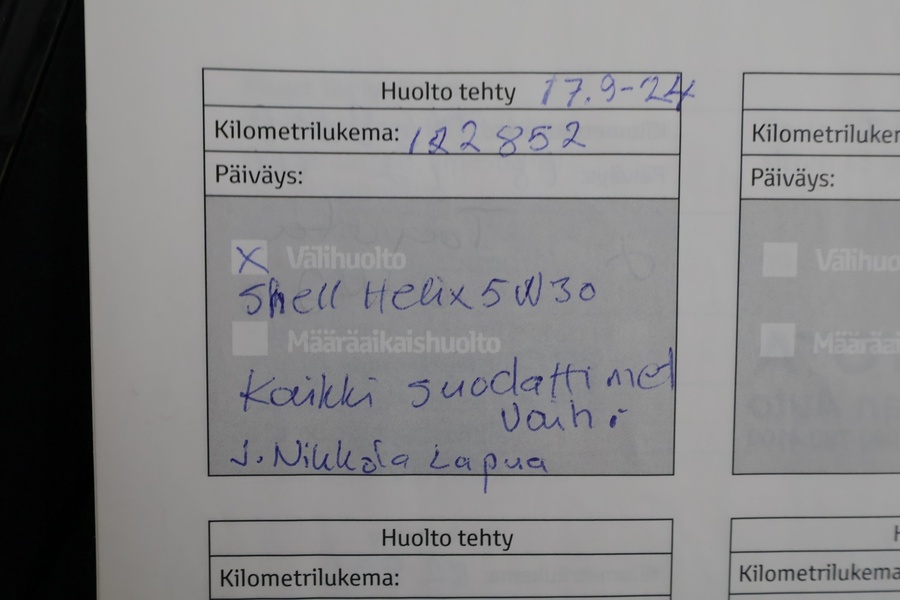 Huolto tehty 17.9-24
Kilometrilukema: 122852
Päiväys:
X Välihuolto
Shell Helix 5W30
Määräaikaishuolto
Kaikki suodattimet
vaiht.
J. Nikkola Lapua
Huolto tehty
Kilometrilukema:
Kilometrilukem
Päiväys:
Välihuo
Määräa
H
Kilometrilukema